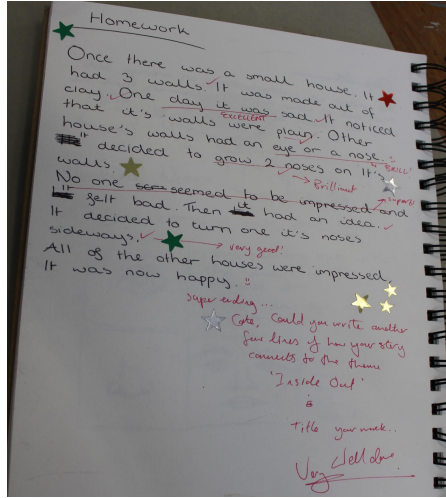 Homework
Once there was a small house. It
had 3 walls. It was made out of
clay. One day it was sad. It noticed
EXCELLENT
that it's walls were plain. Other
house's walls had an eye or a nose.
It decided to grow 2 noses on it's
walls.
Brilliant
superb!
No one seemed to be impressed and
It felt bad. Then it had an idea.
It decided to turn one it's noses
sideways.
very good!
All of the other houses were impressed.
It was now happy.
super ending...
Cate, Could you write another
few lines of how your story
connects to the theme
'Inside Out'
&
Title your work..
Very Well done